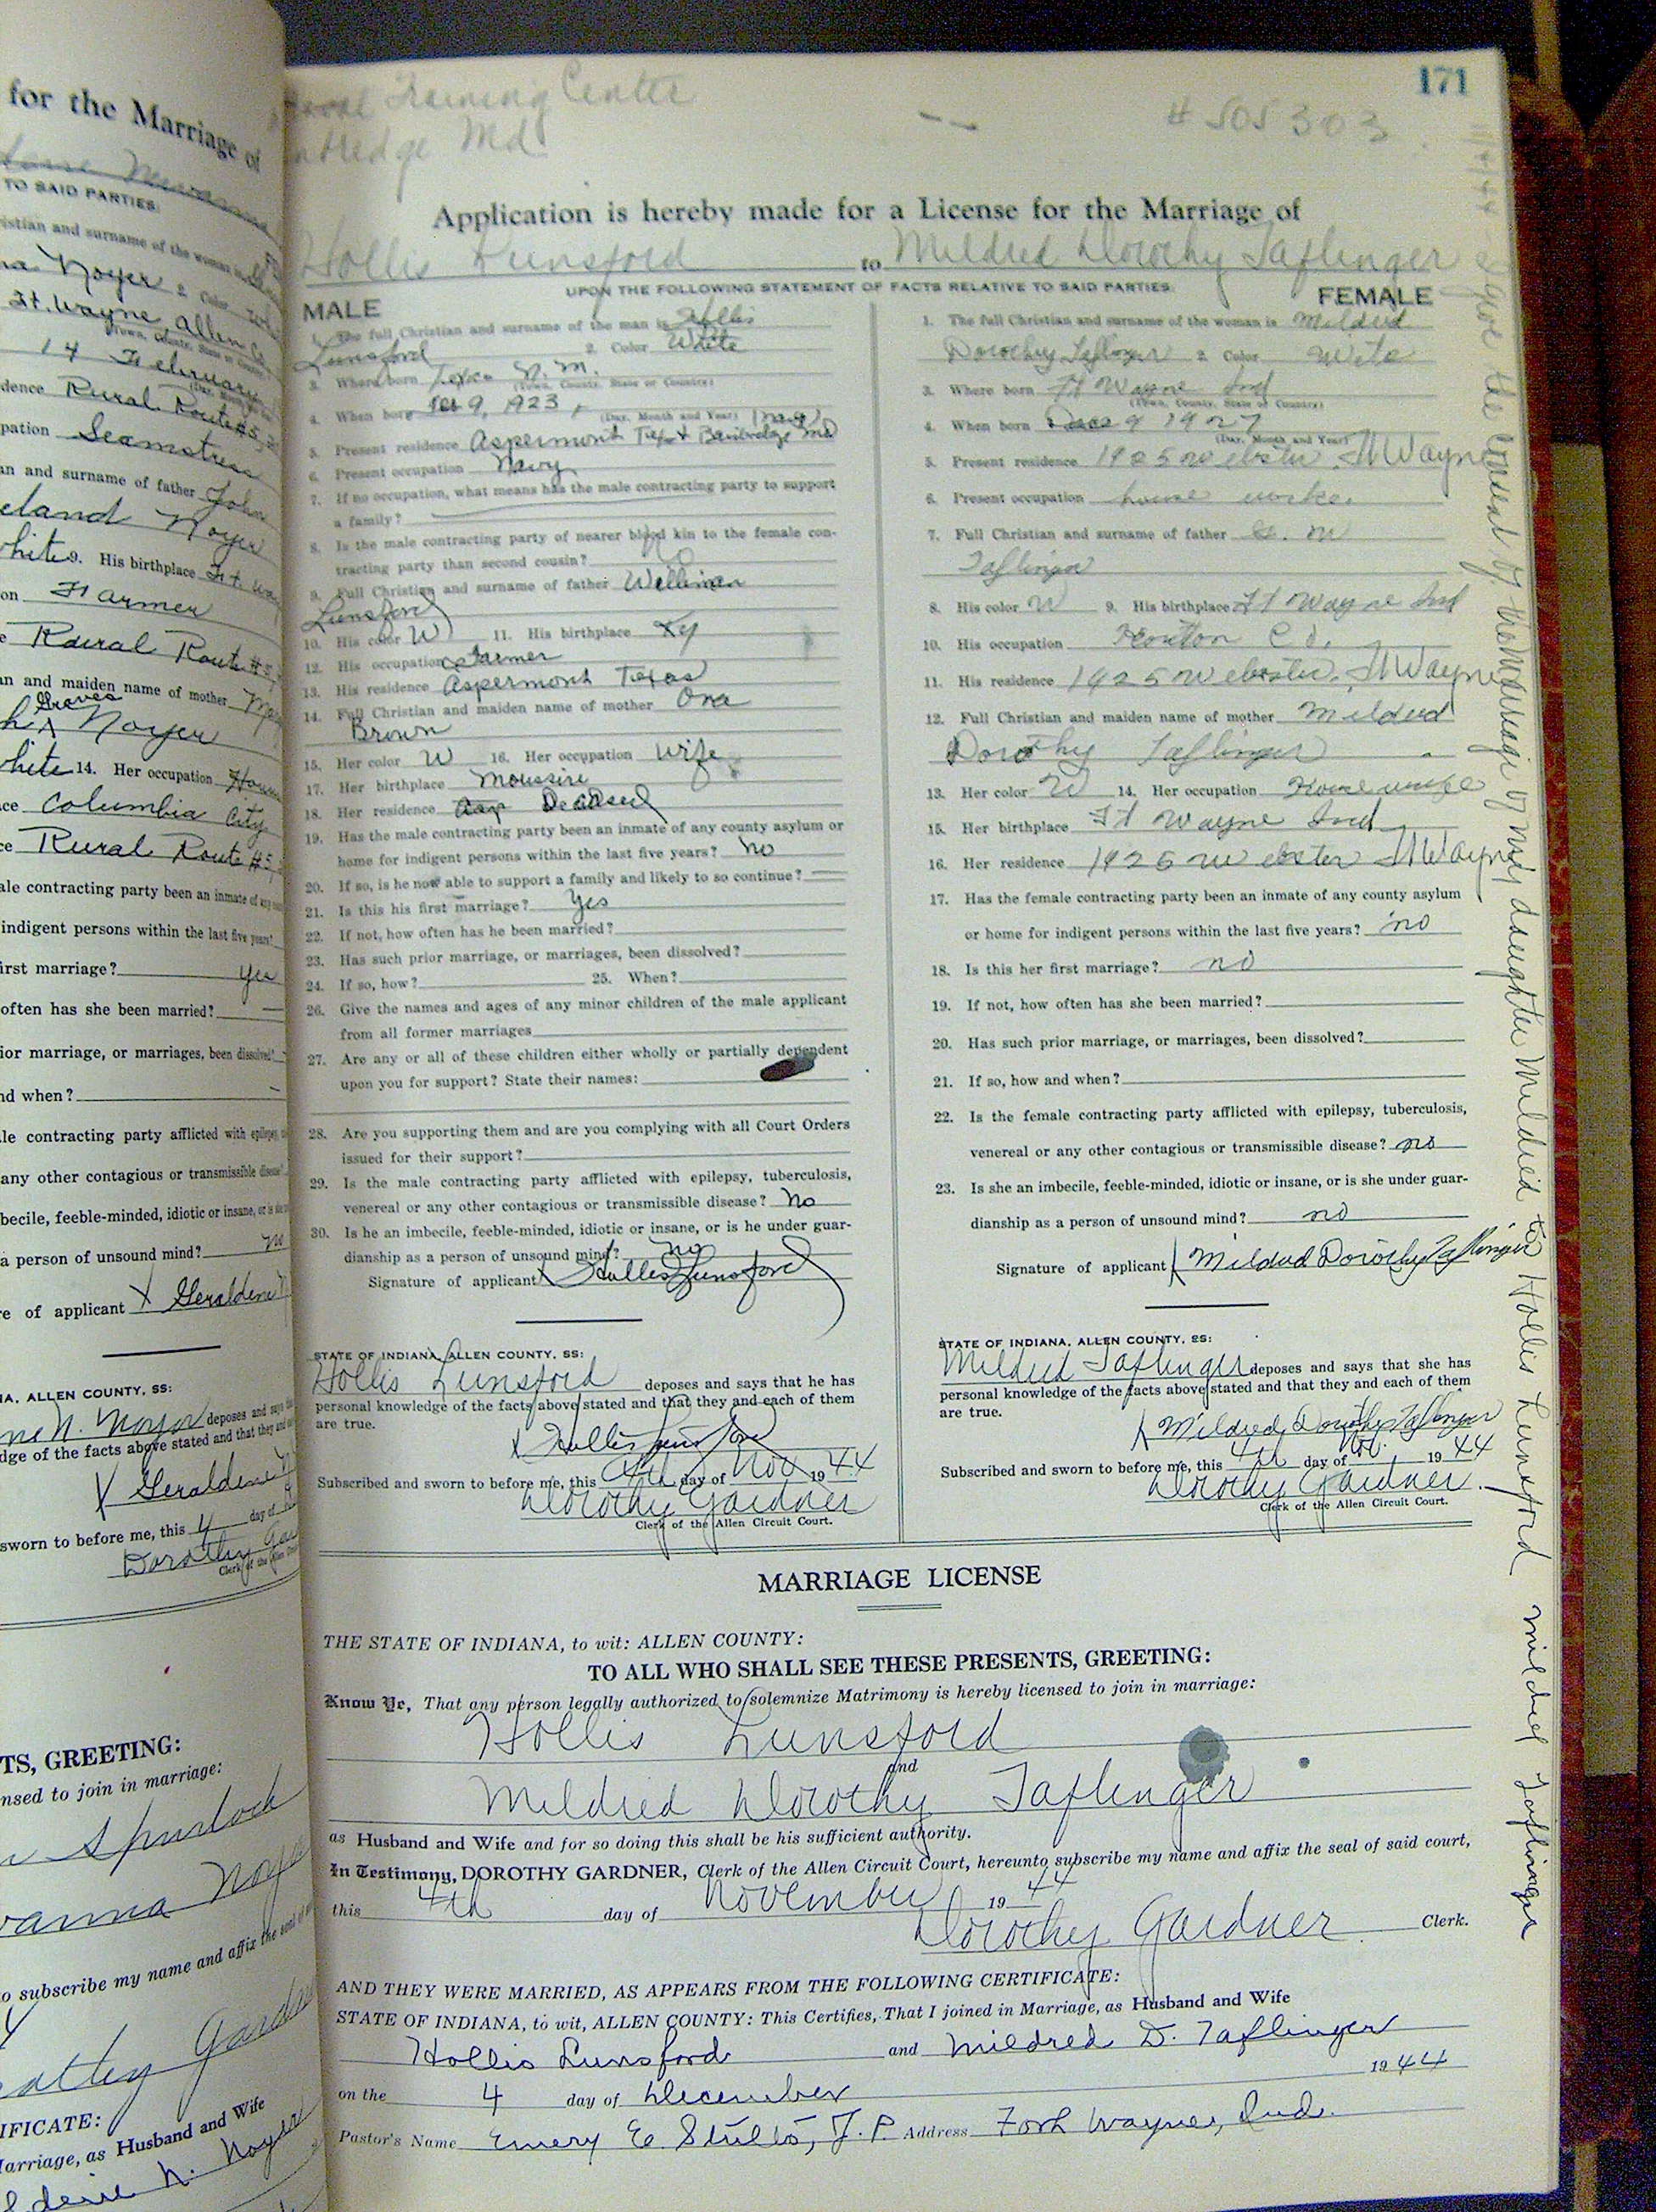 for the Marriage of
TO SAID PARTIES:
Christian and surname of the woman is
Noyer 2. Color
Ft. Wayne, Allen Co
14 February
Residence Rural Route #5,
Occupation Seamstress
and surname of father John
Noyer
white 9. His birthplace Ft. Way
Farmer
Rural Route #5,
and maiden name of mother
Graves
Noyer
white 14. Her occupation
Columbia City
Rural Route #5,
contracting party been an inmate of any
indigent persons within the last five years?
first marriage? yes
often has she been married?
prior marriage, or marriages, been dissolved?
and when?
contracting party afflicted with epilepsy,
any other contagious or transmissible disease?
imbecile, feeble-minded, idiotic or insane, or is
a person of unsound mind? no
of applicant X Geraldine N
ALLEN COUNTY, SS:
N. Noyer deposes and says
knowledge of the facts above stated and that they and
X Geraldine N
sworn to before me, this 4 day of
Dorothy Gar
Clerk of the Allen
TS, GREETING:
licensed to join in marriage:
Spurlock
vanna Noye
to subscribe my name and affix the seal of
Gardner
IFICATE:
Marriage, as Husband and Wife
N. Noyer
171
Naval Training Center
Md
# 505303
Application is hereby made for a License for the Marriage of
Hollis Lunsford to Mildred Dorothy Taflinger
UPON THE FOLLOWING STATEMENT OF FACTS RELATIVE TO SAID PARTIES:
MALE
1. The full Christian and surname of the man is Hollis
Lunsford 2. Color White
3. Where born Texico N. M.
(Town, County, State or Country)
4. When born Feb 9, 1923,
(Day, Month and Year)
5. Present residence Aspermont Tex + Bainbridge Md
6. Present occupation Navy
7. If no occupation, what means has the male contracting party to support
a family?
8. Is the male contracting party of nearer blood kin to the female con-
tracting party than second cousin? No
9. Full Christian and surname of father William
Lunsford
10. His color W 11. His birthplace Ky
12. His occupation Farmer
13. His residence Aspermont Texas
14. Full Christian and maiden name of mother Ona
Brown
15. Her color W 16. Her occupation wife
17. Her birthplace Moussiri
18. Her residence Deceased
19. Has the male contracting party been an inmate of any county asylum or
home for indigent persons within the last five years? No
20. If so, is he now able to support a family and likely to so continue?
21. Is this his first marriage? Yes
22. If not, how often has he been married?
23. Has such prior marriage, or marriages, been dissolved?
24. If so, how? 25. When?
26. Give the names and ages of any minor children of the male applicant
from all former marriages
27. Are any or all of these children either wholly or partially dependent
upon you for support? State their names:
28. Are you supporting them and are you complying with all Court Orders
issued for their support?
29. Is the male contracting party afflicted with epilepsy, tuberculosis,
venereal or any other contagious or transmissible disease? No
30. Is he an imbecile, feeble-minded, idiotic or insane, or is he under guar-
dianship as a person of unsound mind? No
Signature of applicant X Hollis Lunsford
STATE OF INDIANA, ALLEN COUNTY, SS:
Hollis Lunsford deposes and says that he has
personal knowledge of the facts above stated and that they and each of them
are true.
X Hollis Lunsford
Subscribed and sworn to before me, this 4th day of Nov 1944
Dorothy Gardner
Clerk of the Allen Circuit Court.
FEMALE
1. The full Christian and surname of the woman is Mildred
Dorothy Taflinger 2. Color White
3. Where born Ft Wayne Ind
(Town, County, State or Country)
4. When born Dec 9 1927
(Day, Month and Year)
5. Present residence 1925 Webster. Ft Wayne
6. Present occupation house worker
7. Full Christian and surname of father
Taflinger
8. His color W 9. His birthplace Ft Wayne Ind
10. His occupation Co.
11. His residence 1925 Webster. Ft Wayne
12. Full Christian and maiden name of mother Mildred
Dorothy Taflinger
13. Her color W 14. Her occupation House wife
15. Her birthplace Ft Wayne Ind
16. Her residence 1925 Webster Ft Wayne
17. Has the female contracting party been an inmate of any county asylum
or home for indigent persons within the last five years? no
18. Is this her first marriage? no
19. If not, how often has she been married?
20. Has such prior marriage, or marriages, been dissolved?
21. If so, how and when?
22. Is the female contracting party afflicted with epilepsy, tuberculosis,
venereal or any other contagious or transmissible disease? no
23. Is she an imbecile, feeble-minded, idiotic or insane, or is she under guar-
dianship as a person of unsound mind? no
Signature of applicant X Mildred Dorothy Taflinger
STATE OF INDIANA, ALLEN COUNTY, SS:
Mildred Taflinger deposes and says that she has
personal knowledge of the facts above stated and that they and each of them
are true.
X Mildred Dorothy Taflinger
Subscribed and sworn to before me, this 4th day of Nov. 1944
Dorothy Gardner.
Clerk of the Allen Circuit Court.
MARRIAGE LICENSE
THE STATE OF INDIANA, to wit: ALLEN COUNTY:
TO ALL WHO SHALL SEE THESE PRESENTS, GREETING:
Know Ye, That any person legally authorized to solemnize Matrimony is hereby licensed to join in marriage:
Hollis Lunsford
and
Mildred Dorothy Taflinger
as Husband and Wife and for so doing this shall be his sufficient authority.
In Testimony, DOROTHY GARDNER, Clerk of the Allen Circuit Court, hereunto subscribe my name and affix the seal of said court,
this 4th day of November 1944
Dorothy Gardner. Clerk.
AND THEY WERE MARRIED, AS APPEARS FROM THE FOLLOWING CERTIFICATE:
STATE OF INDIANA, to wit, ALLEN COUNTY: This Certifies, That I joined in Marriage, as Husband and Wife
Hollis Lunsford and Mildred D. Taflinger
on the 4 day of December 1944
Pastor's Name Emery E. Stults, J.P. Address Fort Wayne, Ind.
11-4-44 I give the consent of the marriage of my daughter Mildred to Hollis Lunsford Mildred Taflinger